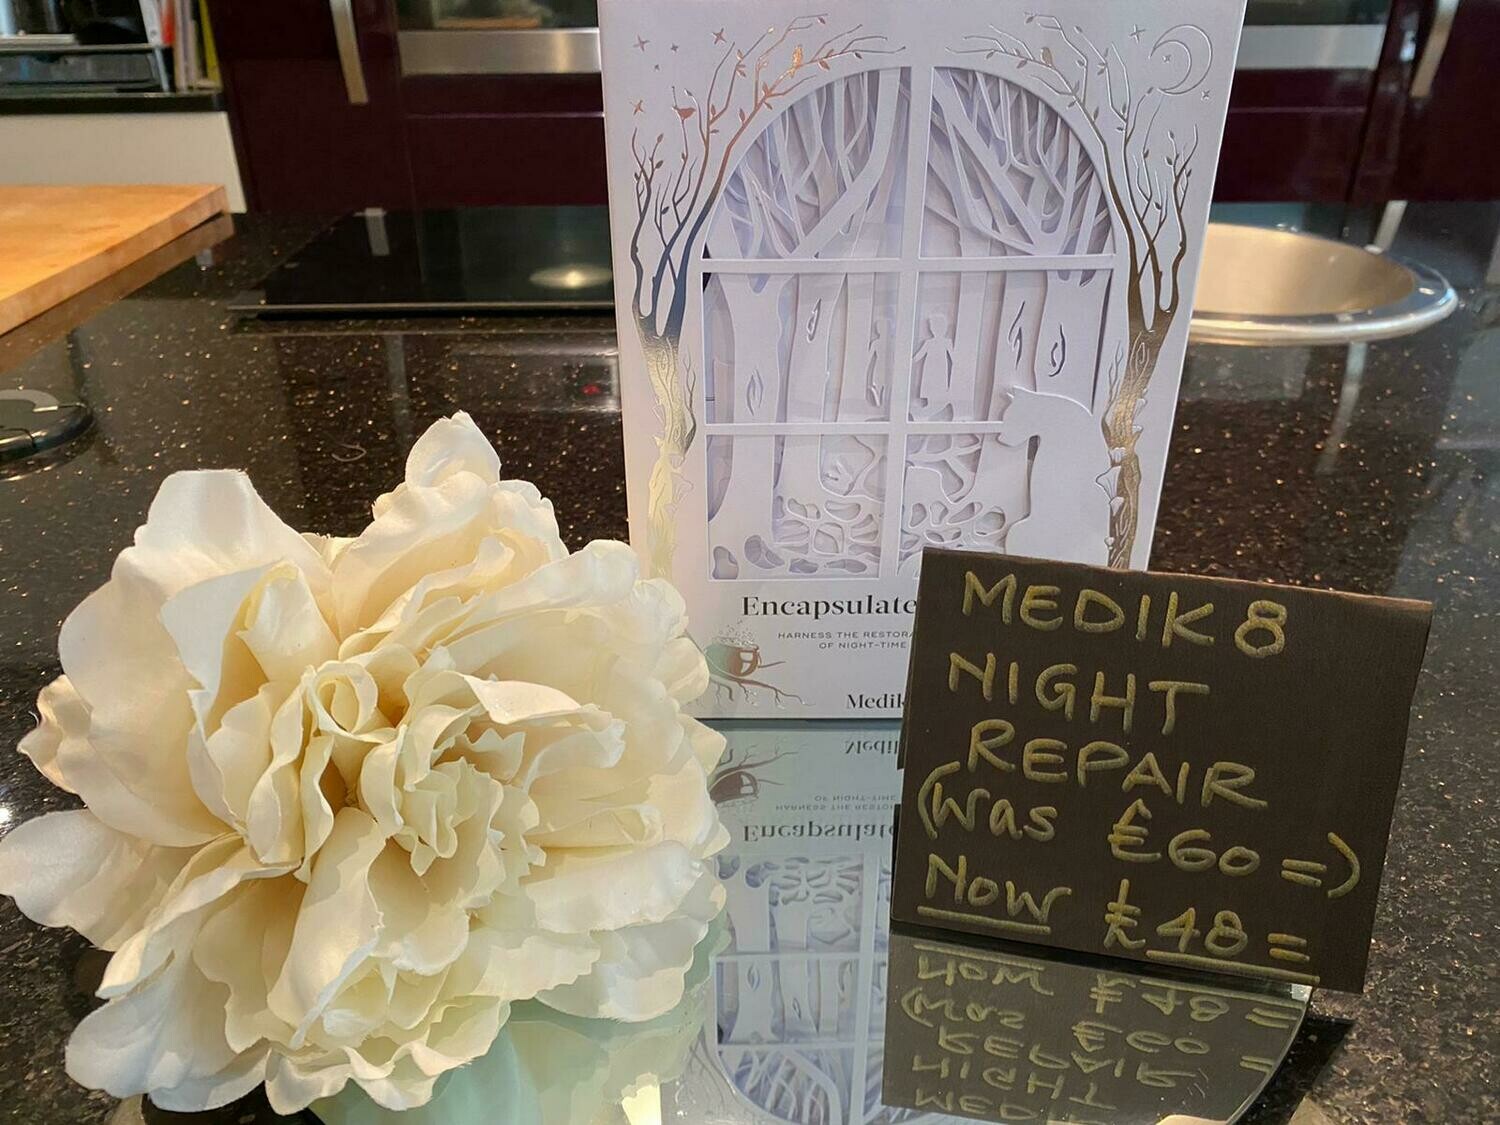 Encapsulate
HARNESS THE
OF NIGHT-TIME
Medik
MEDIK8
NIGHT
REPAIR
(Was £60=)
Now £48=